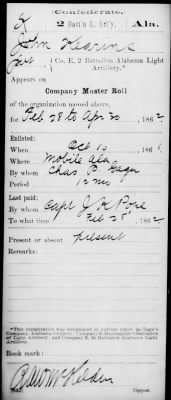 Confederate.
K 2 Batt'n L. Art'y. Ala.
John Kearins
Pvt Co. E, 2 Battalion Alabama Light
Artillery.*
Appears on
Company Muster Roll
of the organization named above,
for Feb 28 to Apr 30, 1862
Enlisted:
When Oct 10, 1861
Where Mobile Ala
By whom Chas P. Gage
Period 12 mo
Last paid:
By whom Capt J. H. Pope
To what time Feb 28, 1862
Present or absent present
Remarks:
*This organization was designated at various times as Gage's
Company, Alabama Artillery; Company E, Battalion
of Light Artillery; and Company E, 2d Battalion Alabama
Light Artillery.
Book mark:
Copyist.